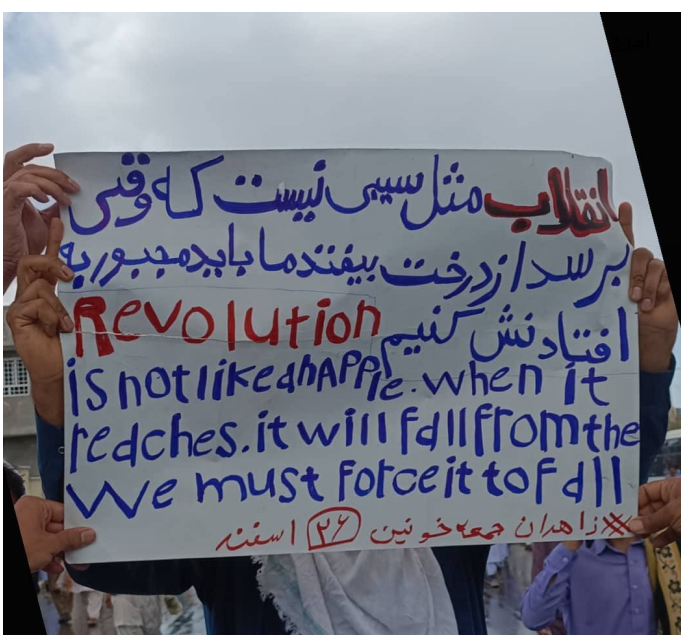 انقلاب مثل سیبی نیست که وقتی
برسد از درخت بیفتد ما باید مجبور به
افتادنش کنیم Revolution
is not like anApple. when it
reaches. it will fall from the
We must force it to fall
زاهدان جمعه خونین ۲۶ اسفند